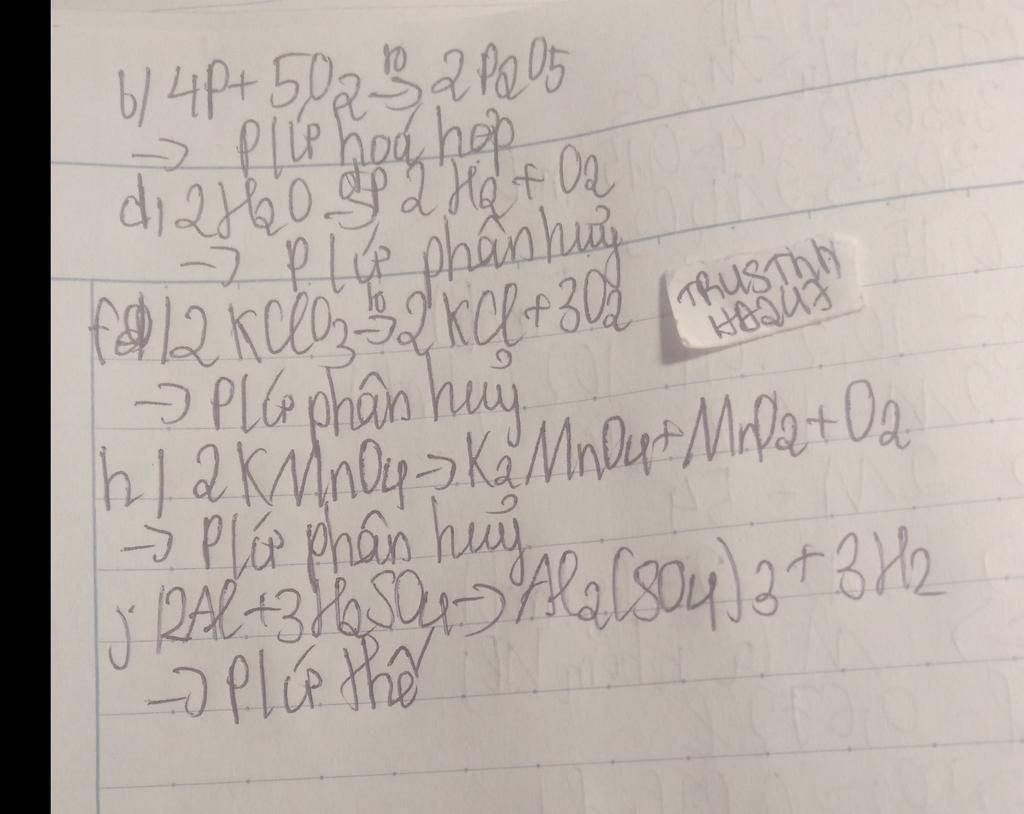 b) 4P + 5O2 tº→ 2P2O5
→ P/ứ hoá hợp
d) 2H2O đp→ 2H2 + O2
→ P/ứ phân huỷ
f) 2KClO3 tº→ 2KCl + 3O2
TRUSTNN
HA247
→ P/ứ phân huỷ
h) 2KMnO4 → K2MnO4 + MnO2 + O2
→ P/ứ phân huỷ
j) 2Al + 3H2SO4 → Al2(SO4)3 + 3H2
→ P/ứ thế